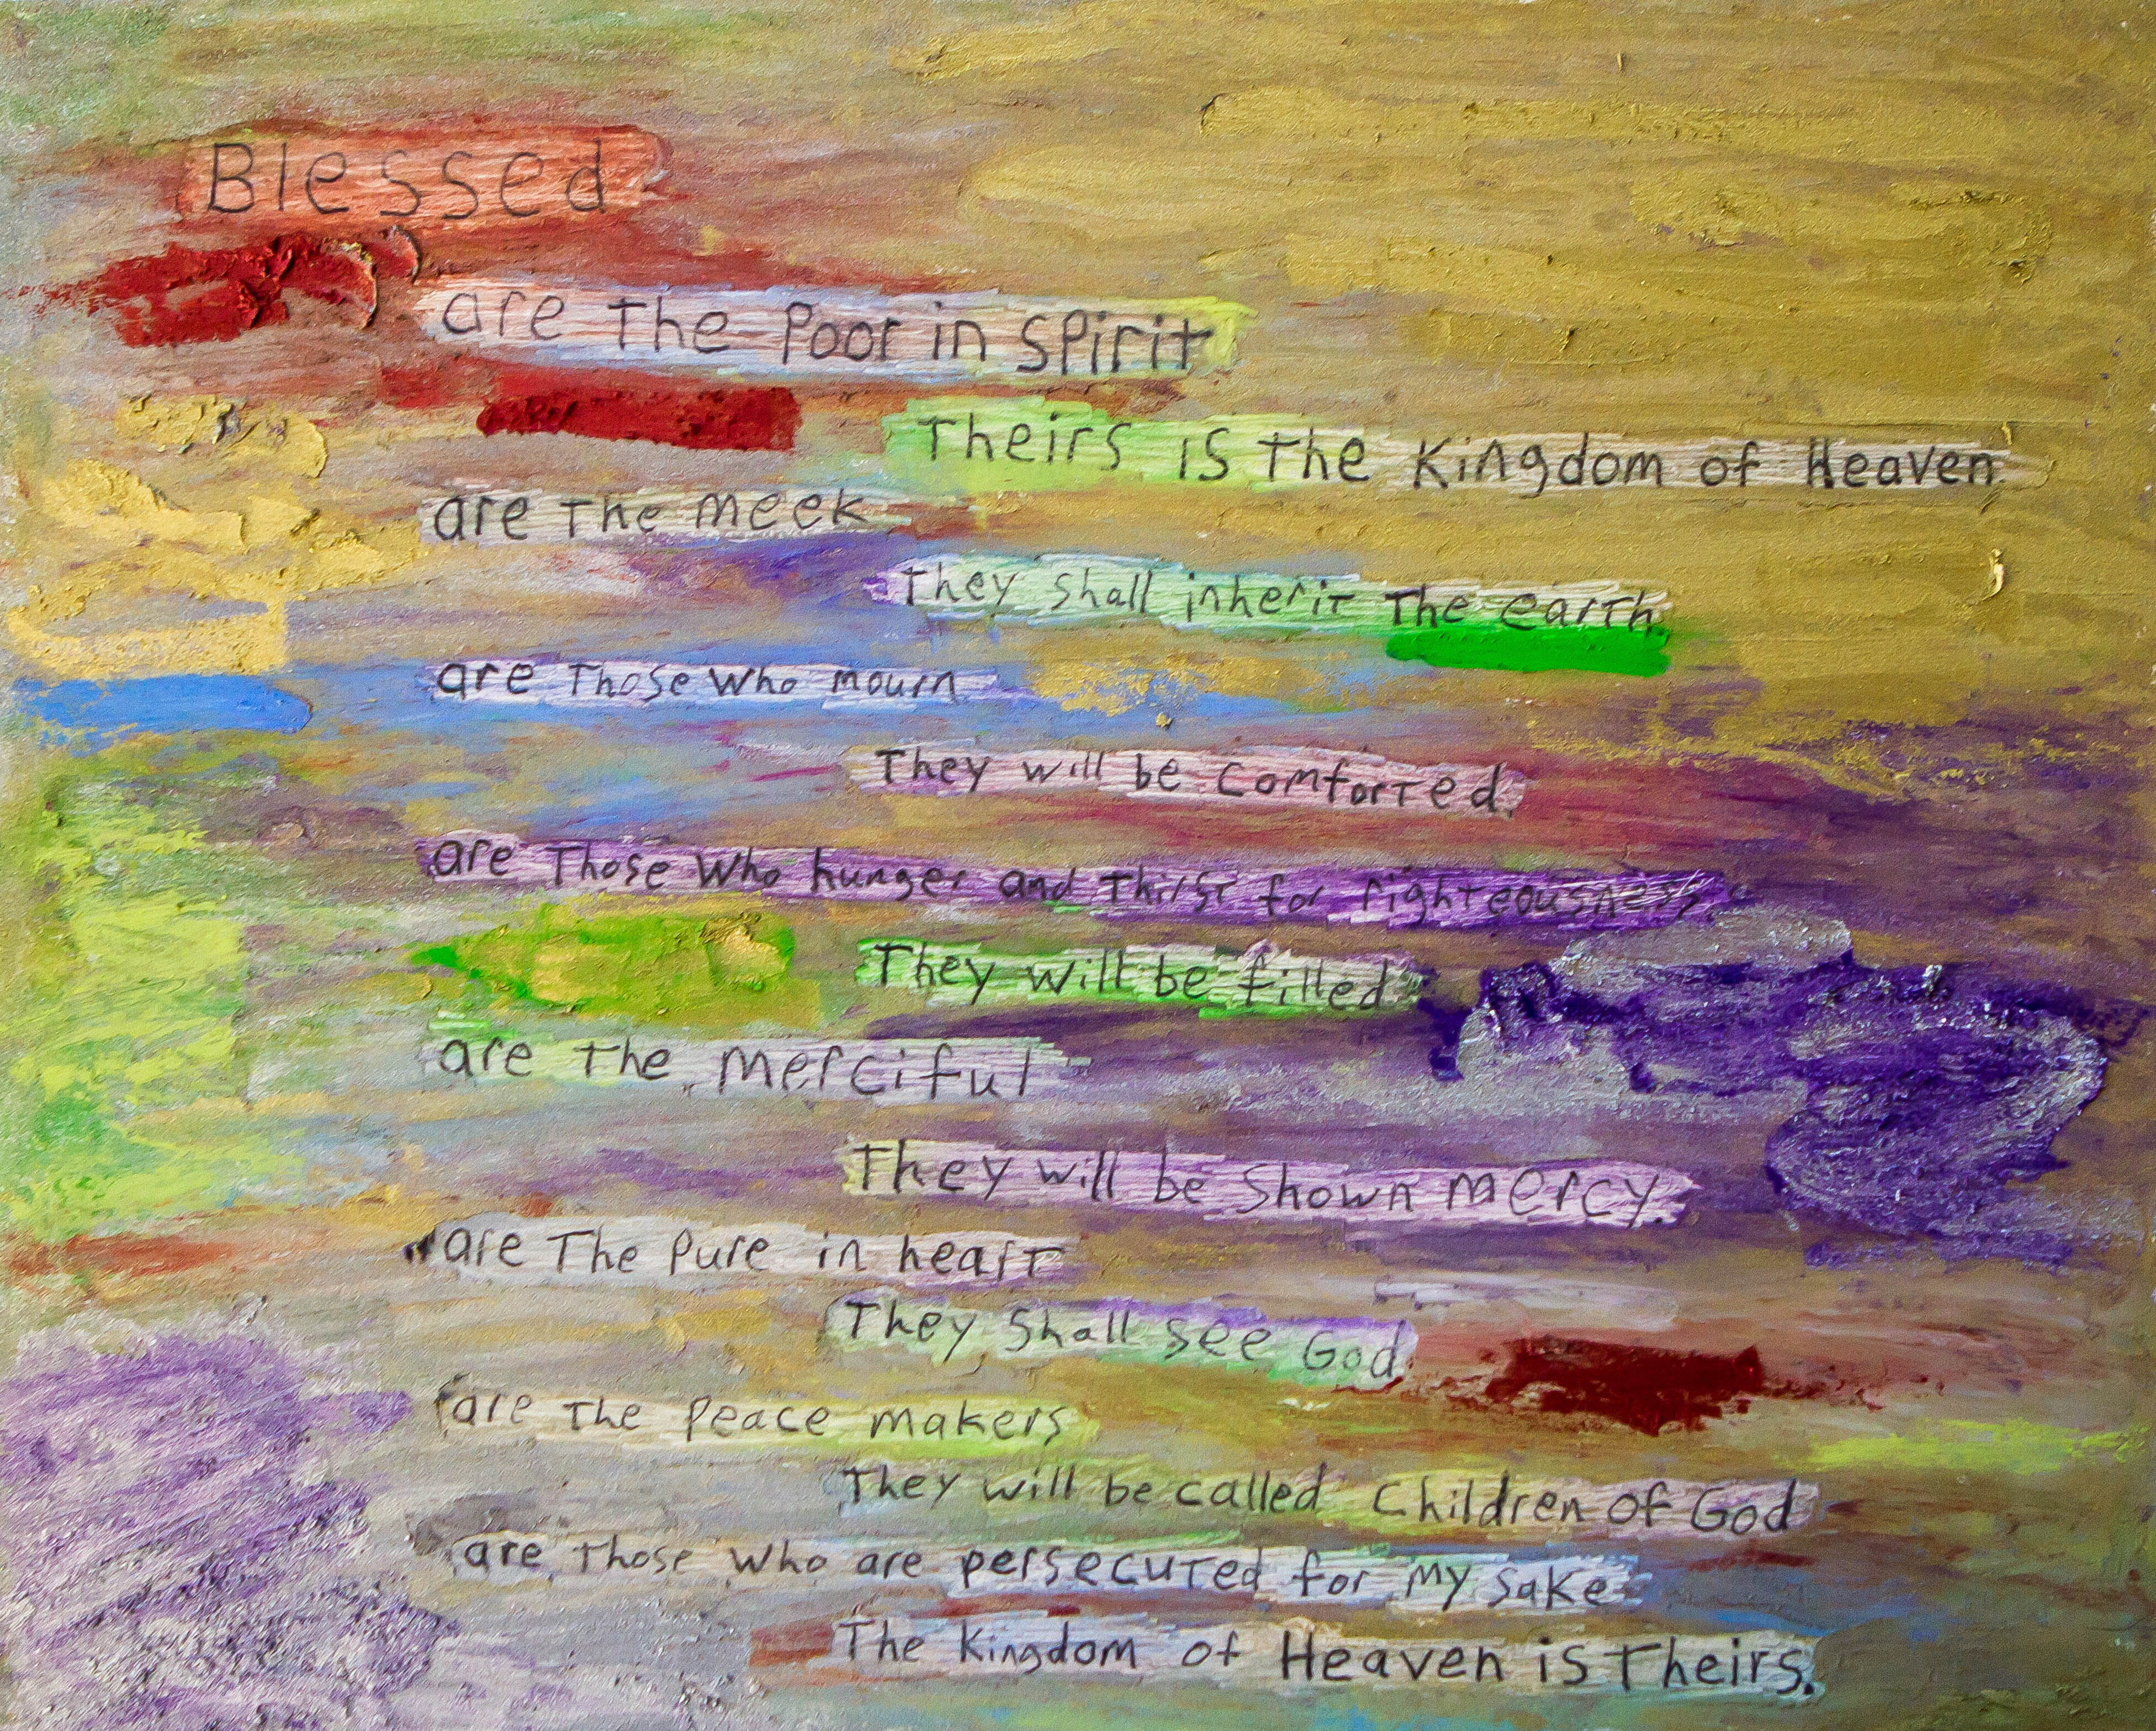 Blessed
are The Poor in Spirit
Theirs is The Kingdom of Heaven
are The meek
They shall inherit The earth
are Those who mourn
They will be comforted.
are Those Who hunger and Thirst for righteousness.
They will be filled
are The merciful
They will be Shown mercy.
are The Pure in heart
They Shall see God
are The Peace makers
They will be called Children of God
are Those Who are persecuted for my sake
The Kingdom of Heaven is Theirs.